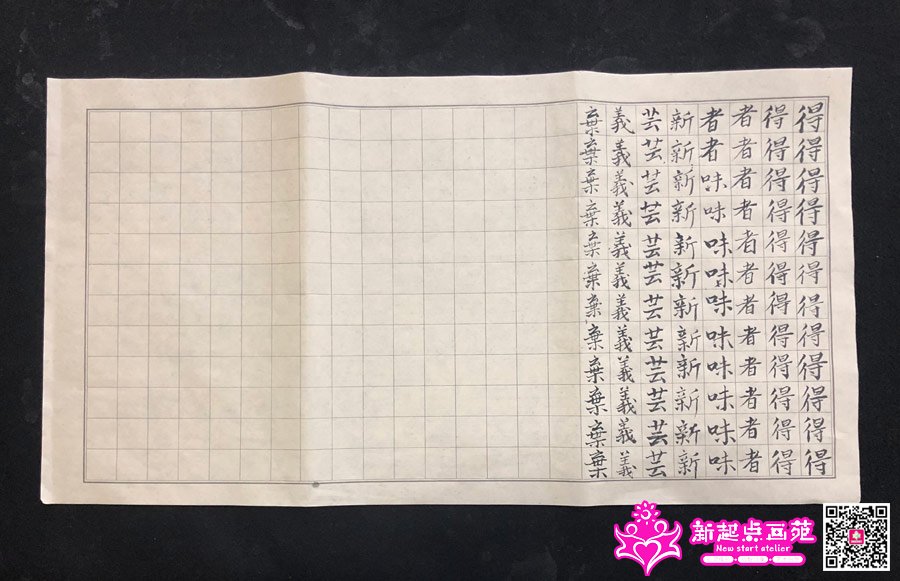 得得得得得得得得得得得得
得得得得得得得得得得得得
者者者者者者者者者者者者
者者味味味味味味味味味味
新新新新新新新新新新新新
芸芸芸芸芸芸芸芸芸芸芸芸
義義義義義義義義義義義義
棄棄棄棄棄棄棄棄棄棄棄棄
新起点画苑
New start atelier